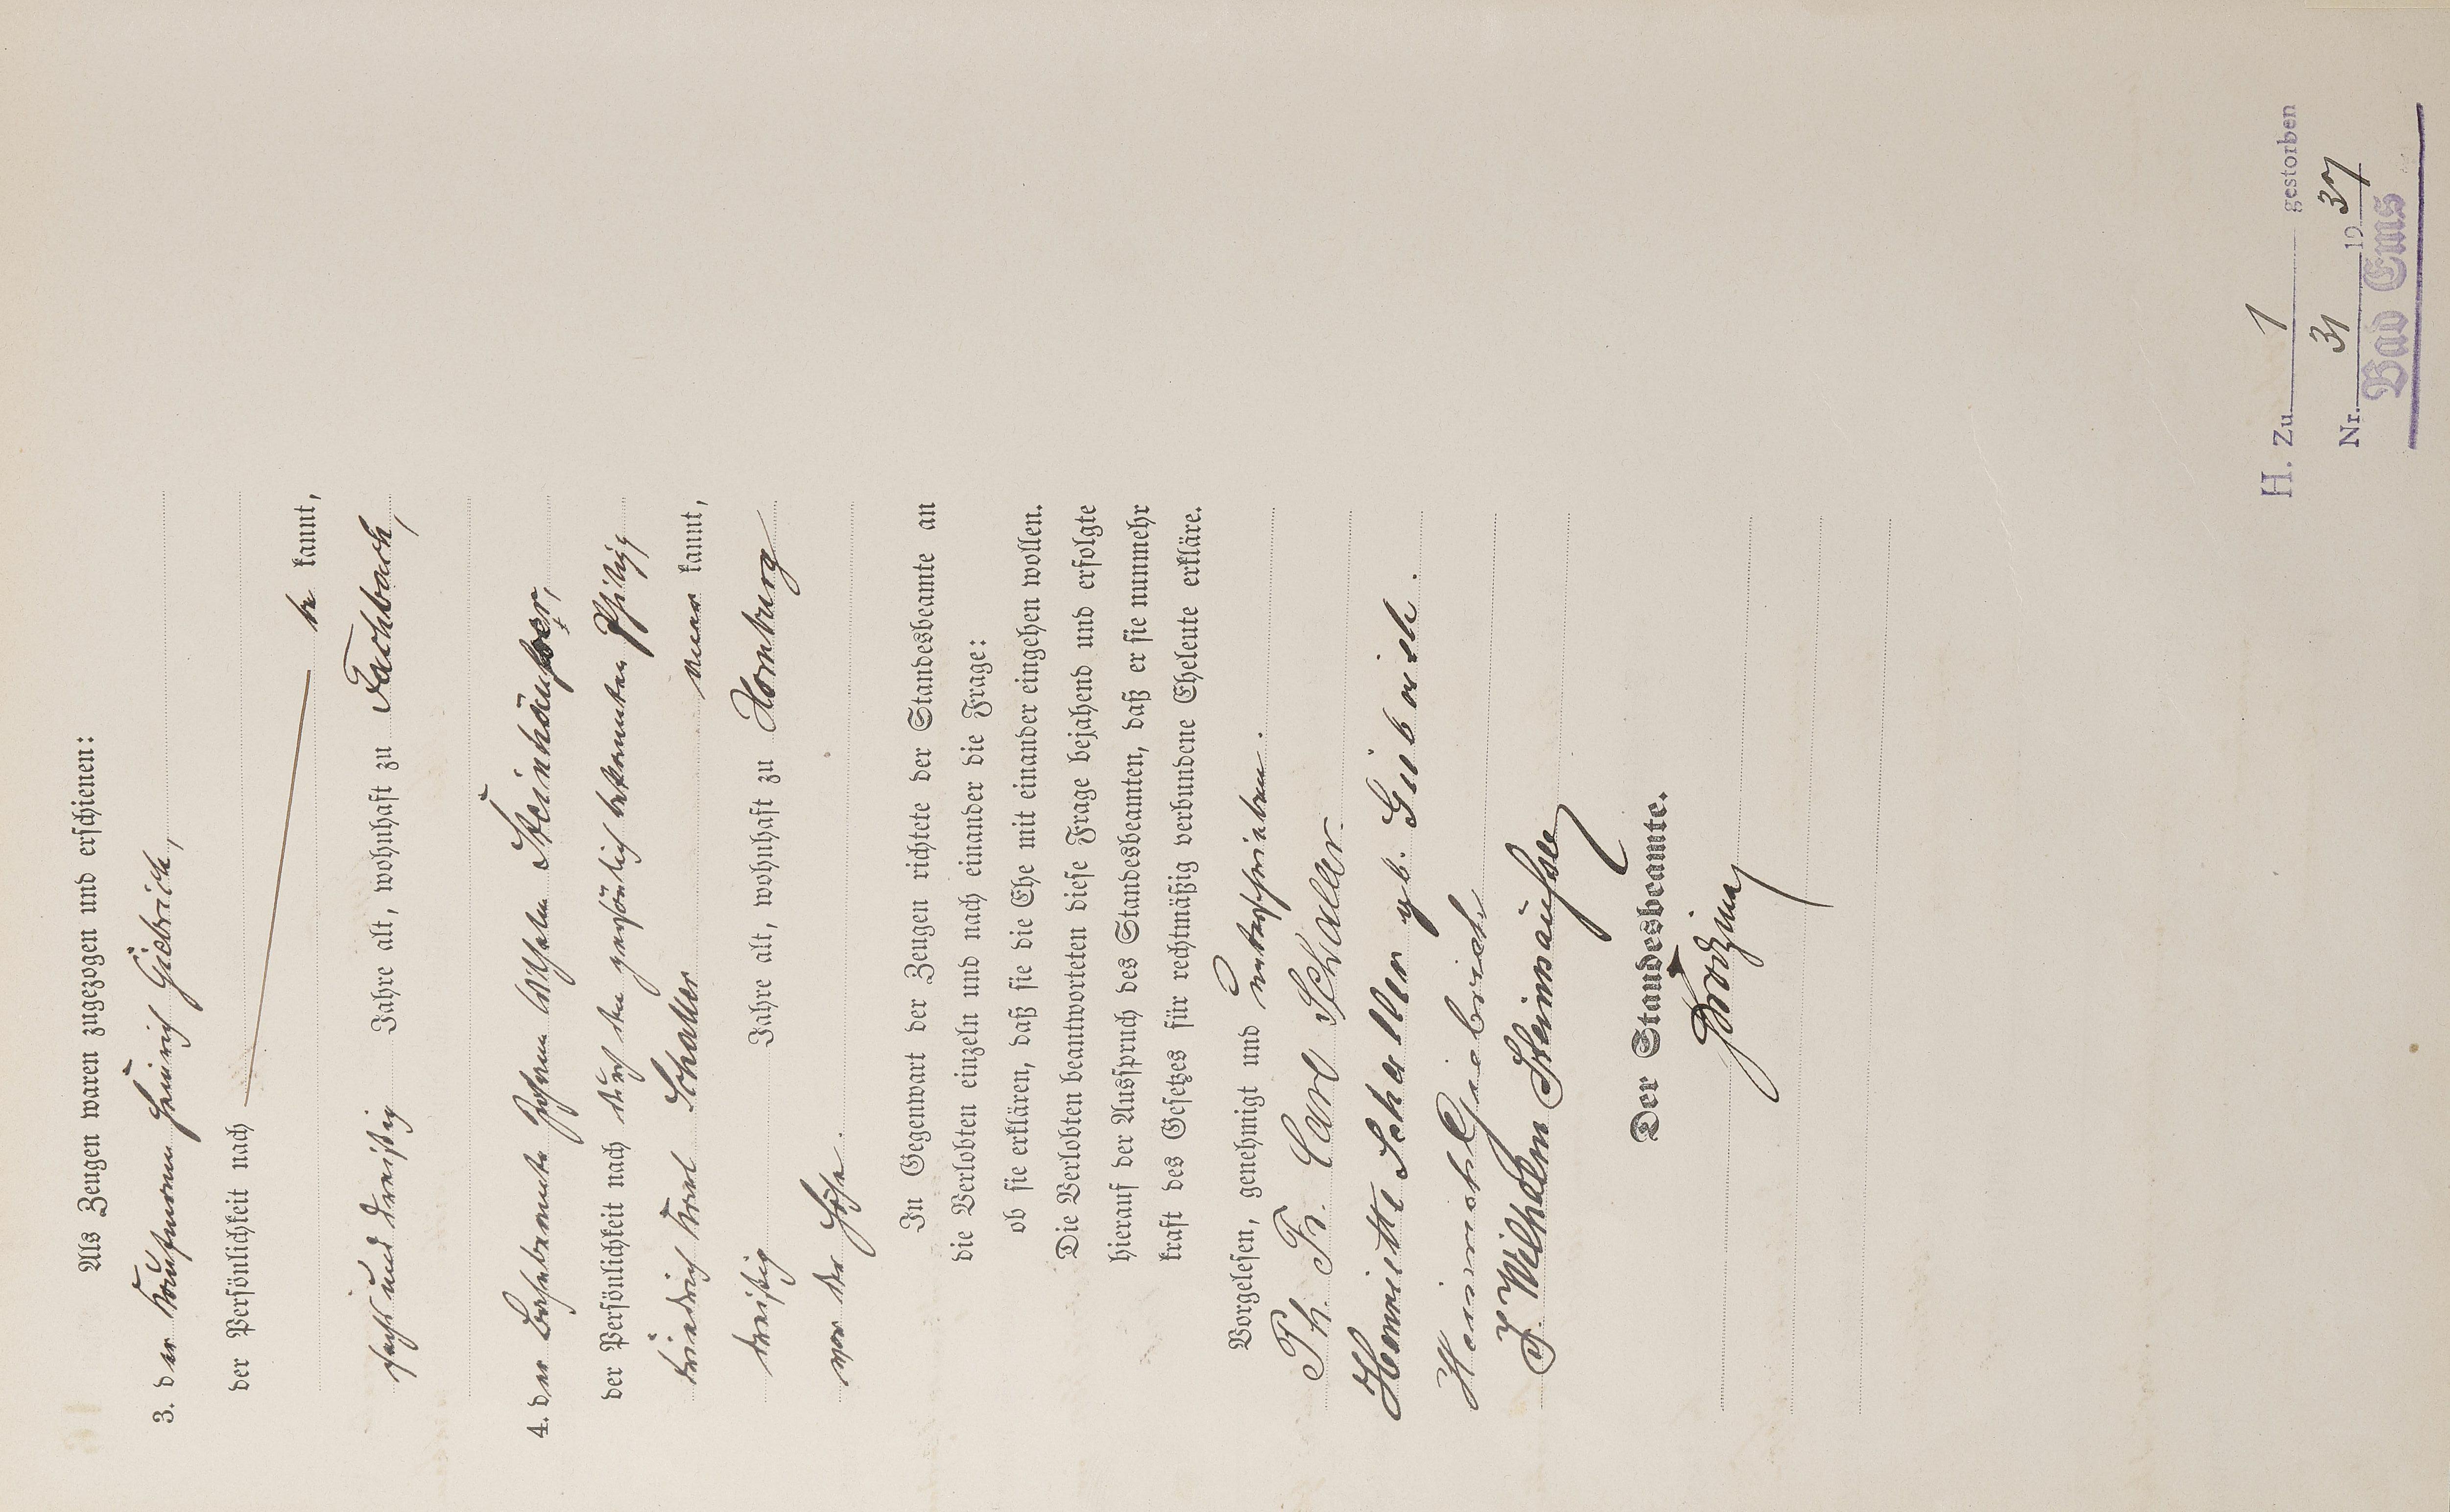 Als Zeugen waren zugezogen und erschienen:
3. der Kaufmann Heinrich Giebrich,
der Persönlichkeit nach
be kannt,
sechs und dreißig Jahre alt, wohnhaft zu Fachbach,
4. der Bahnbeamte Johann Wilhelm Steinhäußer,
der Persönlichkeit nach durch den persönlich bekannten Philipp
Friedrich Karl Schaller aner kannt,
dreißig Jahre alt, wohnhaft zu Homburg
vor der Höhe.
In Gegenwart der Zeugen richtete der Standesbeamte an
die Verlobten einzeln und nach einander die Frage:
ob sie erklären, daß sie die Ehe mit einander eingehen wollen.
Die Verlobten beantworteten diese Frage bejahend und erfolgte
hierauf der Ausspruch des Standesbeamten, daß er sie nunmehr
kraft des Gesetzes für rechtmäßig verbundene Eheleute erkläre.
Vorgelesen, genehmigt und unterschrieben.
Ph. Fr. Carl Schaller
Henriette Schaller geb. Giebrich.
Heinrich Giebrich
J. Wilhelm Steinhäußer
Der Standesbeamte.
H. Zu 1 gestorben
Nr. 31 1937
Bad Ems